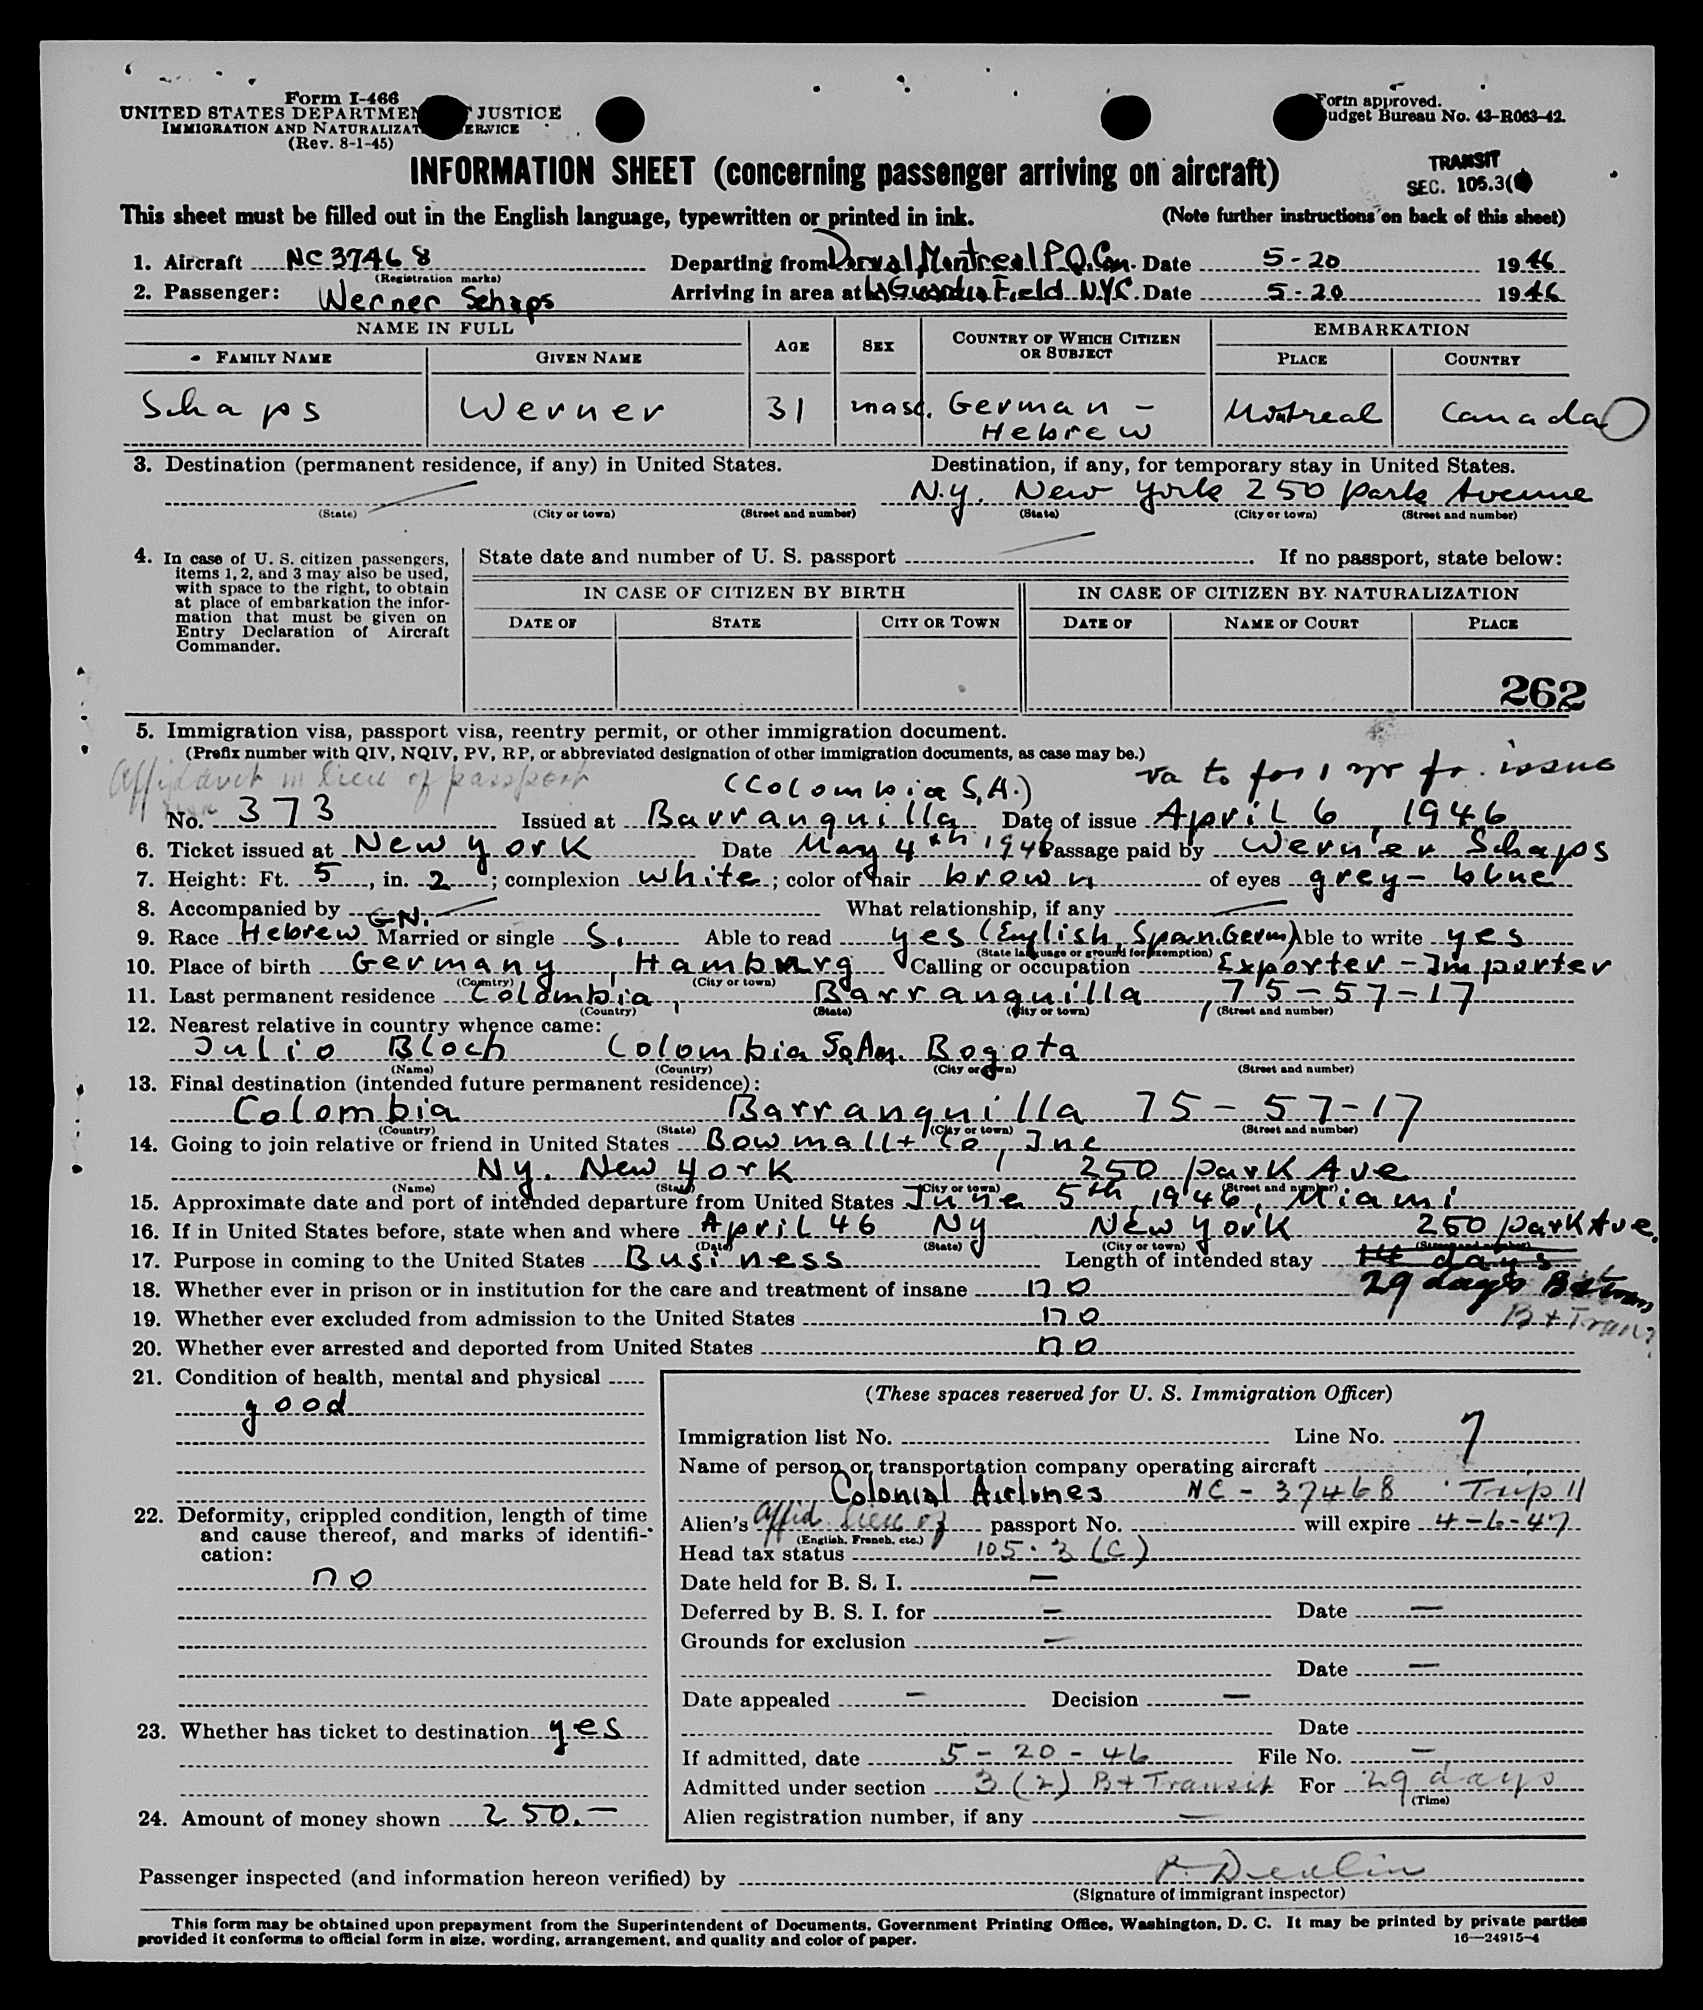 Form I-466
UNITED STATES DEPARTMENT JUSTICE
IMMIGRATION AND NATURALIZAT SERVICE
(Rev. 8-1-45)
Form approved.
Budget Bureau No. 43-R063-42.
INFORMATION SHEET (concerning passenger arriving on aircraft)
TRANSIT
SEC. 105.3(
This sheet must be filled out in the English language, typewritten or printed in ink. (Note further instructions on back of this sheet)
1. Aircraft NC 37468 Departing from Dorval, Montreal P.Q. Can. Date 5-20 1946
(Registration marks)
2. Passenger: Werner Schaps Arriving in area at La Guardia Field N.Y.C. Date 5-20 1946
NAME IN FULL AGE SEX COUNTRY OF WHICH CITIZEN OR SUBJECT EMBARKATION
FAMILY NAME GIVEN NAME PLACE COUNTRY
Schaps Werner 31 masc. German - Hebrew Montreal Canada
3. Destination (permanent residence, if any) in United States. Destination, if any, for temporary stay in United States.
N.y. New York 250 Park Avenue
(State) (City or town) (Street and number) (State) (City or town) (Street and number)
4. In case of U. S. citizen passengers,
items 1, 2, and 3 may also be used,
with space to the right, to obtain
at place of embarkation the infor-
mation that must be given on
Entry Declaration of Aircraft
Commander.
State date and number of U. S. passport . If no passport, state below:
IN CASE OF CITIZEN BY BIRTH IN CASE OF CITIZEN BY NATURALIZATION
DATE OF STATE CITY OR TOWN DATE OF NAME OF COURT PLACE
262
5. Immigration visa, passport visa, reentry permit, or other immigration document.
(Prefix number with QIV, NQIV, PV, RP, or abbreviated designation of other immigration documents, as case may be.)
Affidavit in lieu of passport (Colombia S.A.) va to for 1 yr fr. issue
No. 373 Issued at Barranquilla Date of issue April 6, 1946
6. Ticket issued at New York Date May 4th 1946 Passage paid by Werner Schaps
7. Height: Ft. 5, in. 2; complexion white; color of hair brown of eyes grey-blue
8. Accompanied by What relationship, if any
GN.
9. Race Hebrew Married or single S. Able to read yes (English, Span. Germ) Able to write yes
(State language or ground for exemption)
10. Place of birth Germany, Hamburg Calling or occupation Exporter - Importer
(Country) (City or town)
11. Last permanent residence Colombia, Barranquilla, 75-57-17
(Country) (State) (City or town) (Street and number)
12. Nearest relative in country whence came:
Julio Bloch Colombia So.Am. Bogota
(Name) (Country) (City or town) (Street and number)
13. Final destination (intended future permanent residence):
Colombia Barranquilla 75-57-17
(Country) (State) (City or town) (Street and number)
14. Going to join relative or friend in United States Bowmall + Co, Inc
Ny. New York 250 Park Ave
(Name) (State) (City or town) (Street and number)
15. Approximate date and port of intended departure from United States June 5th, 1946, Miami
16. If in United States before, state when and where April 46 Ny New York 250 Park Ave.
(Date) (State) (City or town) (Street and number)
17. Purpose in coming to the United States Business Length of intended stay 14 days
18. Whether ever in prison or in institution for the care and treatment of insane no 29 days B+Trans
19. Whether ever excluded from admission to the United States no B+Trans
20. Whether ever arrested and deported from United States no
21. Condition of health, mental and physical
good
22. Deformity, crippled condition, length of time
and cause thereof, and marks of identifi-
cation:
no
23. Whether has ticket to destination yes
24. Amount of money shown 250.-
(These spaces reserved for U. S. Immigration Officer)
Immigration list No. Line No. 7
Name of person or transportation company operating aircraft
Colonial Airlines NC-37468 Trip 11
Alien's Affid. lieu of passport No. will expire 4-6-47
(English, French, etc.)
Head tax status 105.3(C)
Date held for B. S. I. —
Deferred by B. S. I. for — Date —
Grounds for exclusion —
Date —
Date appealed — Decision —
Date
If admitted, date 5-20-46 File No. —
Admitted under section 3(2) B+Transit For 29 days
(Time)
Alien registration number, if any —
Passenger inspected (and information hereon verified) by Devlin
(Signature of immigrant inspector)
This form may be obtained upon prepayment from the Superintendent of Documents, Government Printing Office, Washington, D. C. It may be printed by private parties
provided it conforms to official form in size, wording, arrangement, and quality and color of paper. 16—24915-4